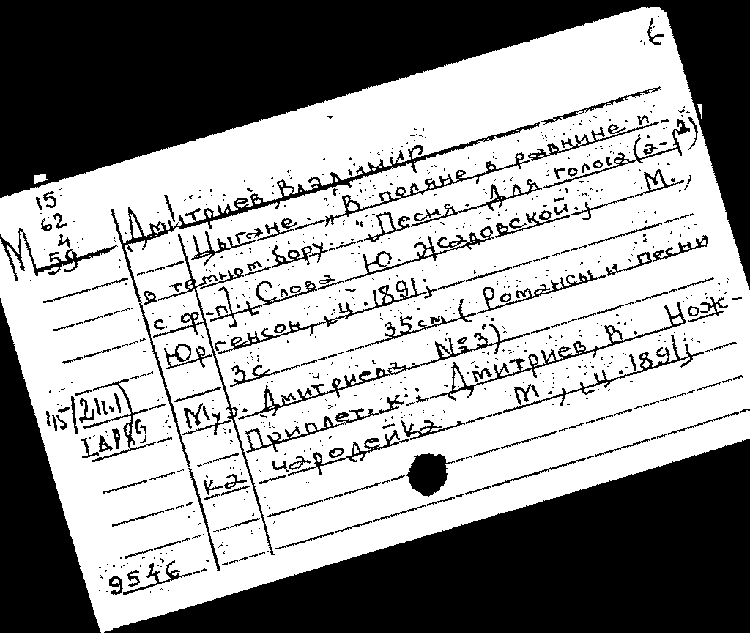 6
15
62
4
М 59
Дмитриев, Владимир
Цыгане. „В поляне, в равнине п
в темном бору..." [Песня. Для голоса (a-f²)
с ф-п]. [Слова Ю. Жадовской.; М.,
Юргенсон, ц. 1891;
3с 35см (Романсы и песни
Муз. Дмитриева. №3)
Приплет. к: Дмитриев, В. Нож-
ка чародейка. М., ц. 1891;
45
9546